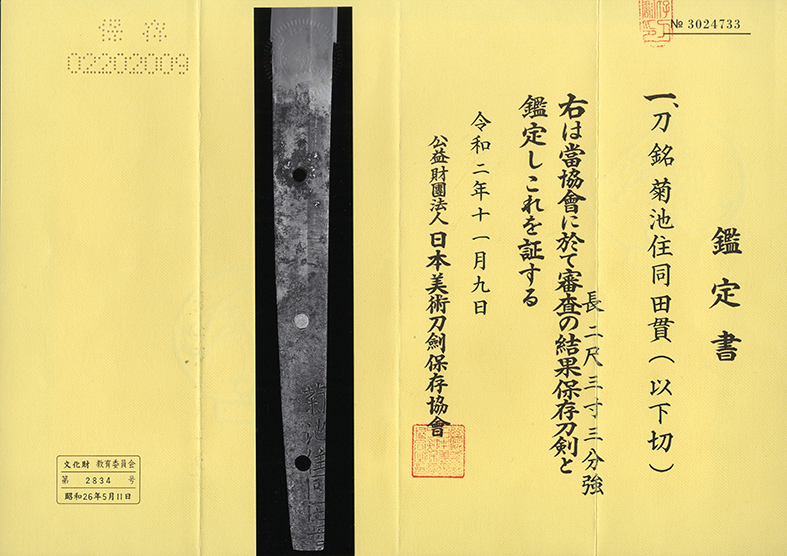 № 3024733
鑑定書
一、刀 銘 菊池住同田貫(以下切)
長二尺三寸三分強
右は當協會に於て審査の結果保存刀剣と
鑑定しこれを証する
令和二年十一月九日
公益財團法人 日本美術刀劍保存協會
保存
02202009
文化財 教育委員会
第 2834 号
昭和26年5月11日
菊池